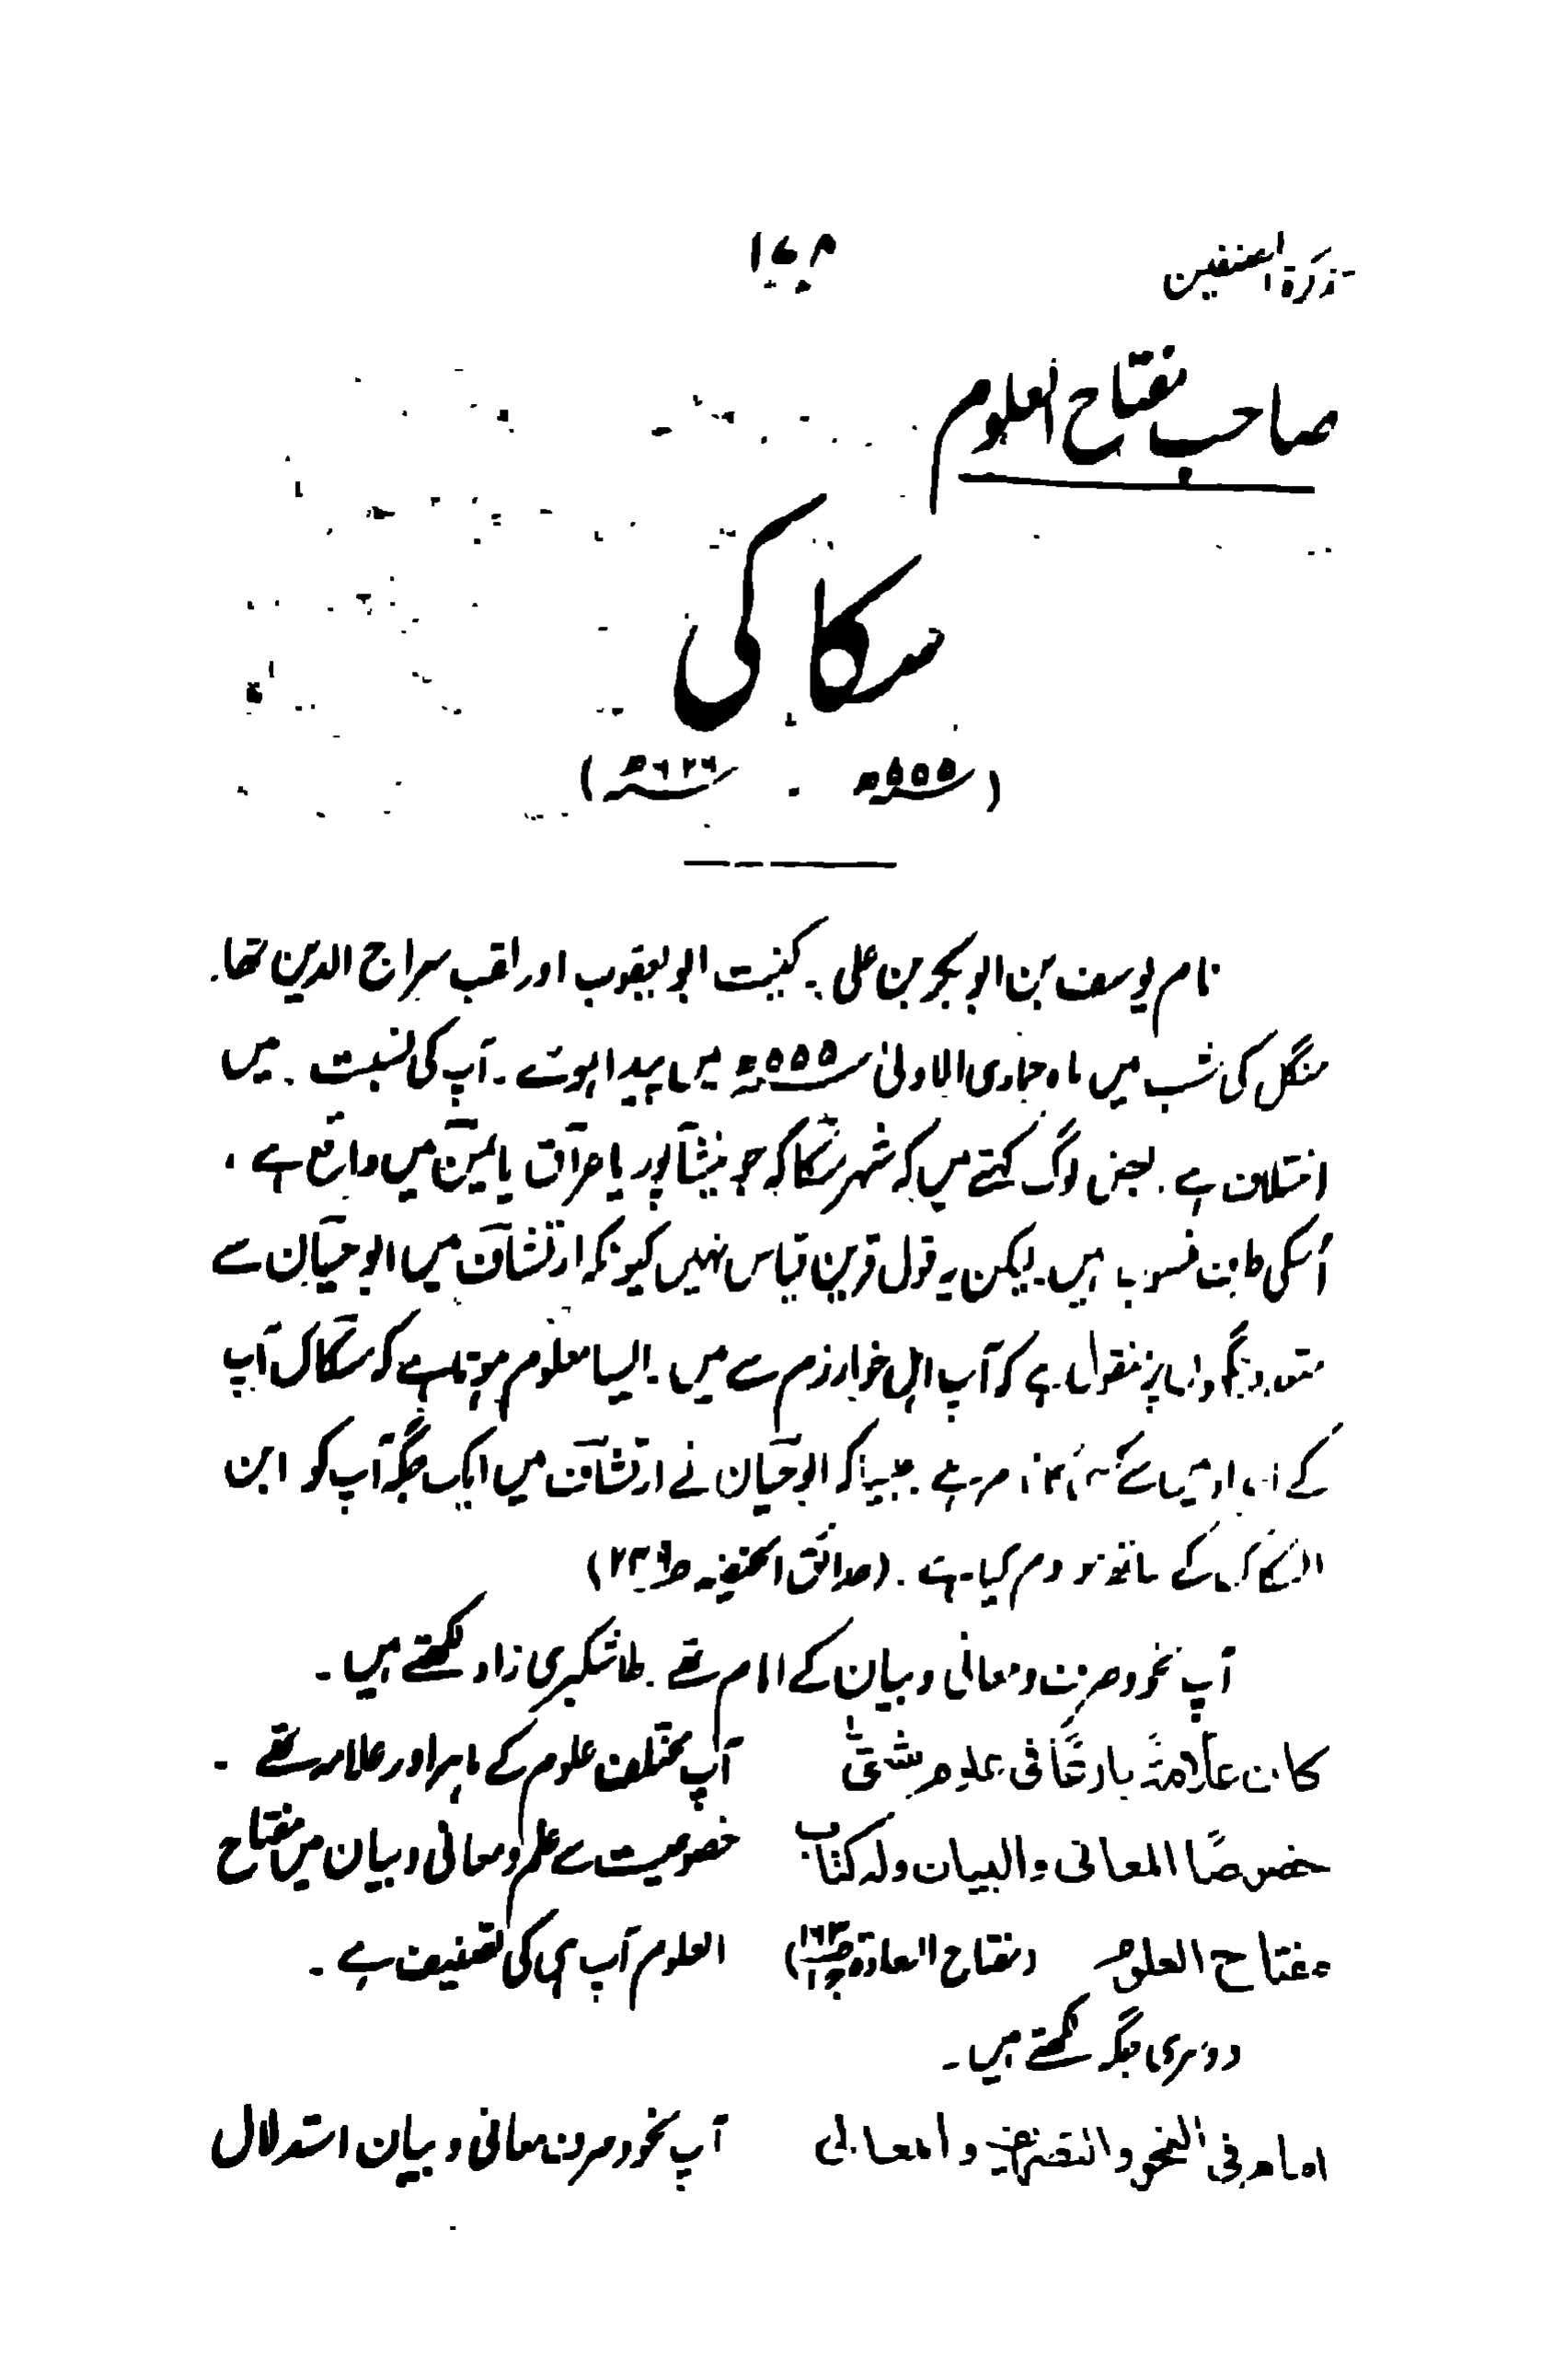 تذکرۃ المصنفین ۱۷۸
صاحب مفتاح العلوم
سکاکی
(۵۵۵ھ . ۶۲۶ھ)
نام یوسف بن ابوبکر بن علی۔ کنیت ابو یعقوب اور لقب سراج الدین تھا۔
منگل کی شب میں ماہ جمادی الاولیٰ ۵۵۵ھ میں پیدا ہوئے۔ آپ کی نسبت میں
اختلاف ہے۔ بعض لوگ کہتے ہیں کہ شہر سکاکہ جو نیشاپور یا عراق یا یمن میں واقع ہے،
اسکی طرف منسوب ہیں۔ لیکن یہ قول قرین قیاس نہیں کیونکہ ارتشاف میں ابو حیان سے
پر منقول ہے کہ آپ اہل خوارزم سے ہیں۔ ایسا معلوم ہوتا ہے کہ سکاک آپ
کے سے کسی کا نام ہے۔ جیسا کہ ابو حیان نے ارتشاف میں ایک جگہ آپ کو ابن
السکاک کے ساتھ موسوم کیا ہے۔ (حدائق الحنفیہ ص۲۳۶)
آپ نحو وصرف ومعانی وبیان کے امام تھے۔ طاشکبری زادہ لکھتے ہیں۔
کان علامۃ بارعًا فی علوم شتیٰ آپ مختلف علوم کے ماہر اور علامہ تھے۔
خصوصًا المعانی والبیان ولہ کتاب خصوصیت سے علم ومعانی وبیان میں مفتاح
مفتاح العلوم (مفتاح السعادۃ ص۱۶۳) العلوم آپ ہی کی تصنیف ہے۔
دوسری جگہ لکھتے ہیں۔
امام فی النحو والتصریف والمعانی آپ نحو وصرف معانی وبیان استدلال